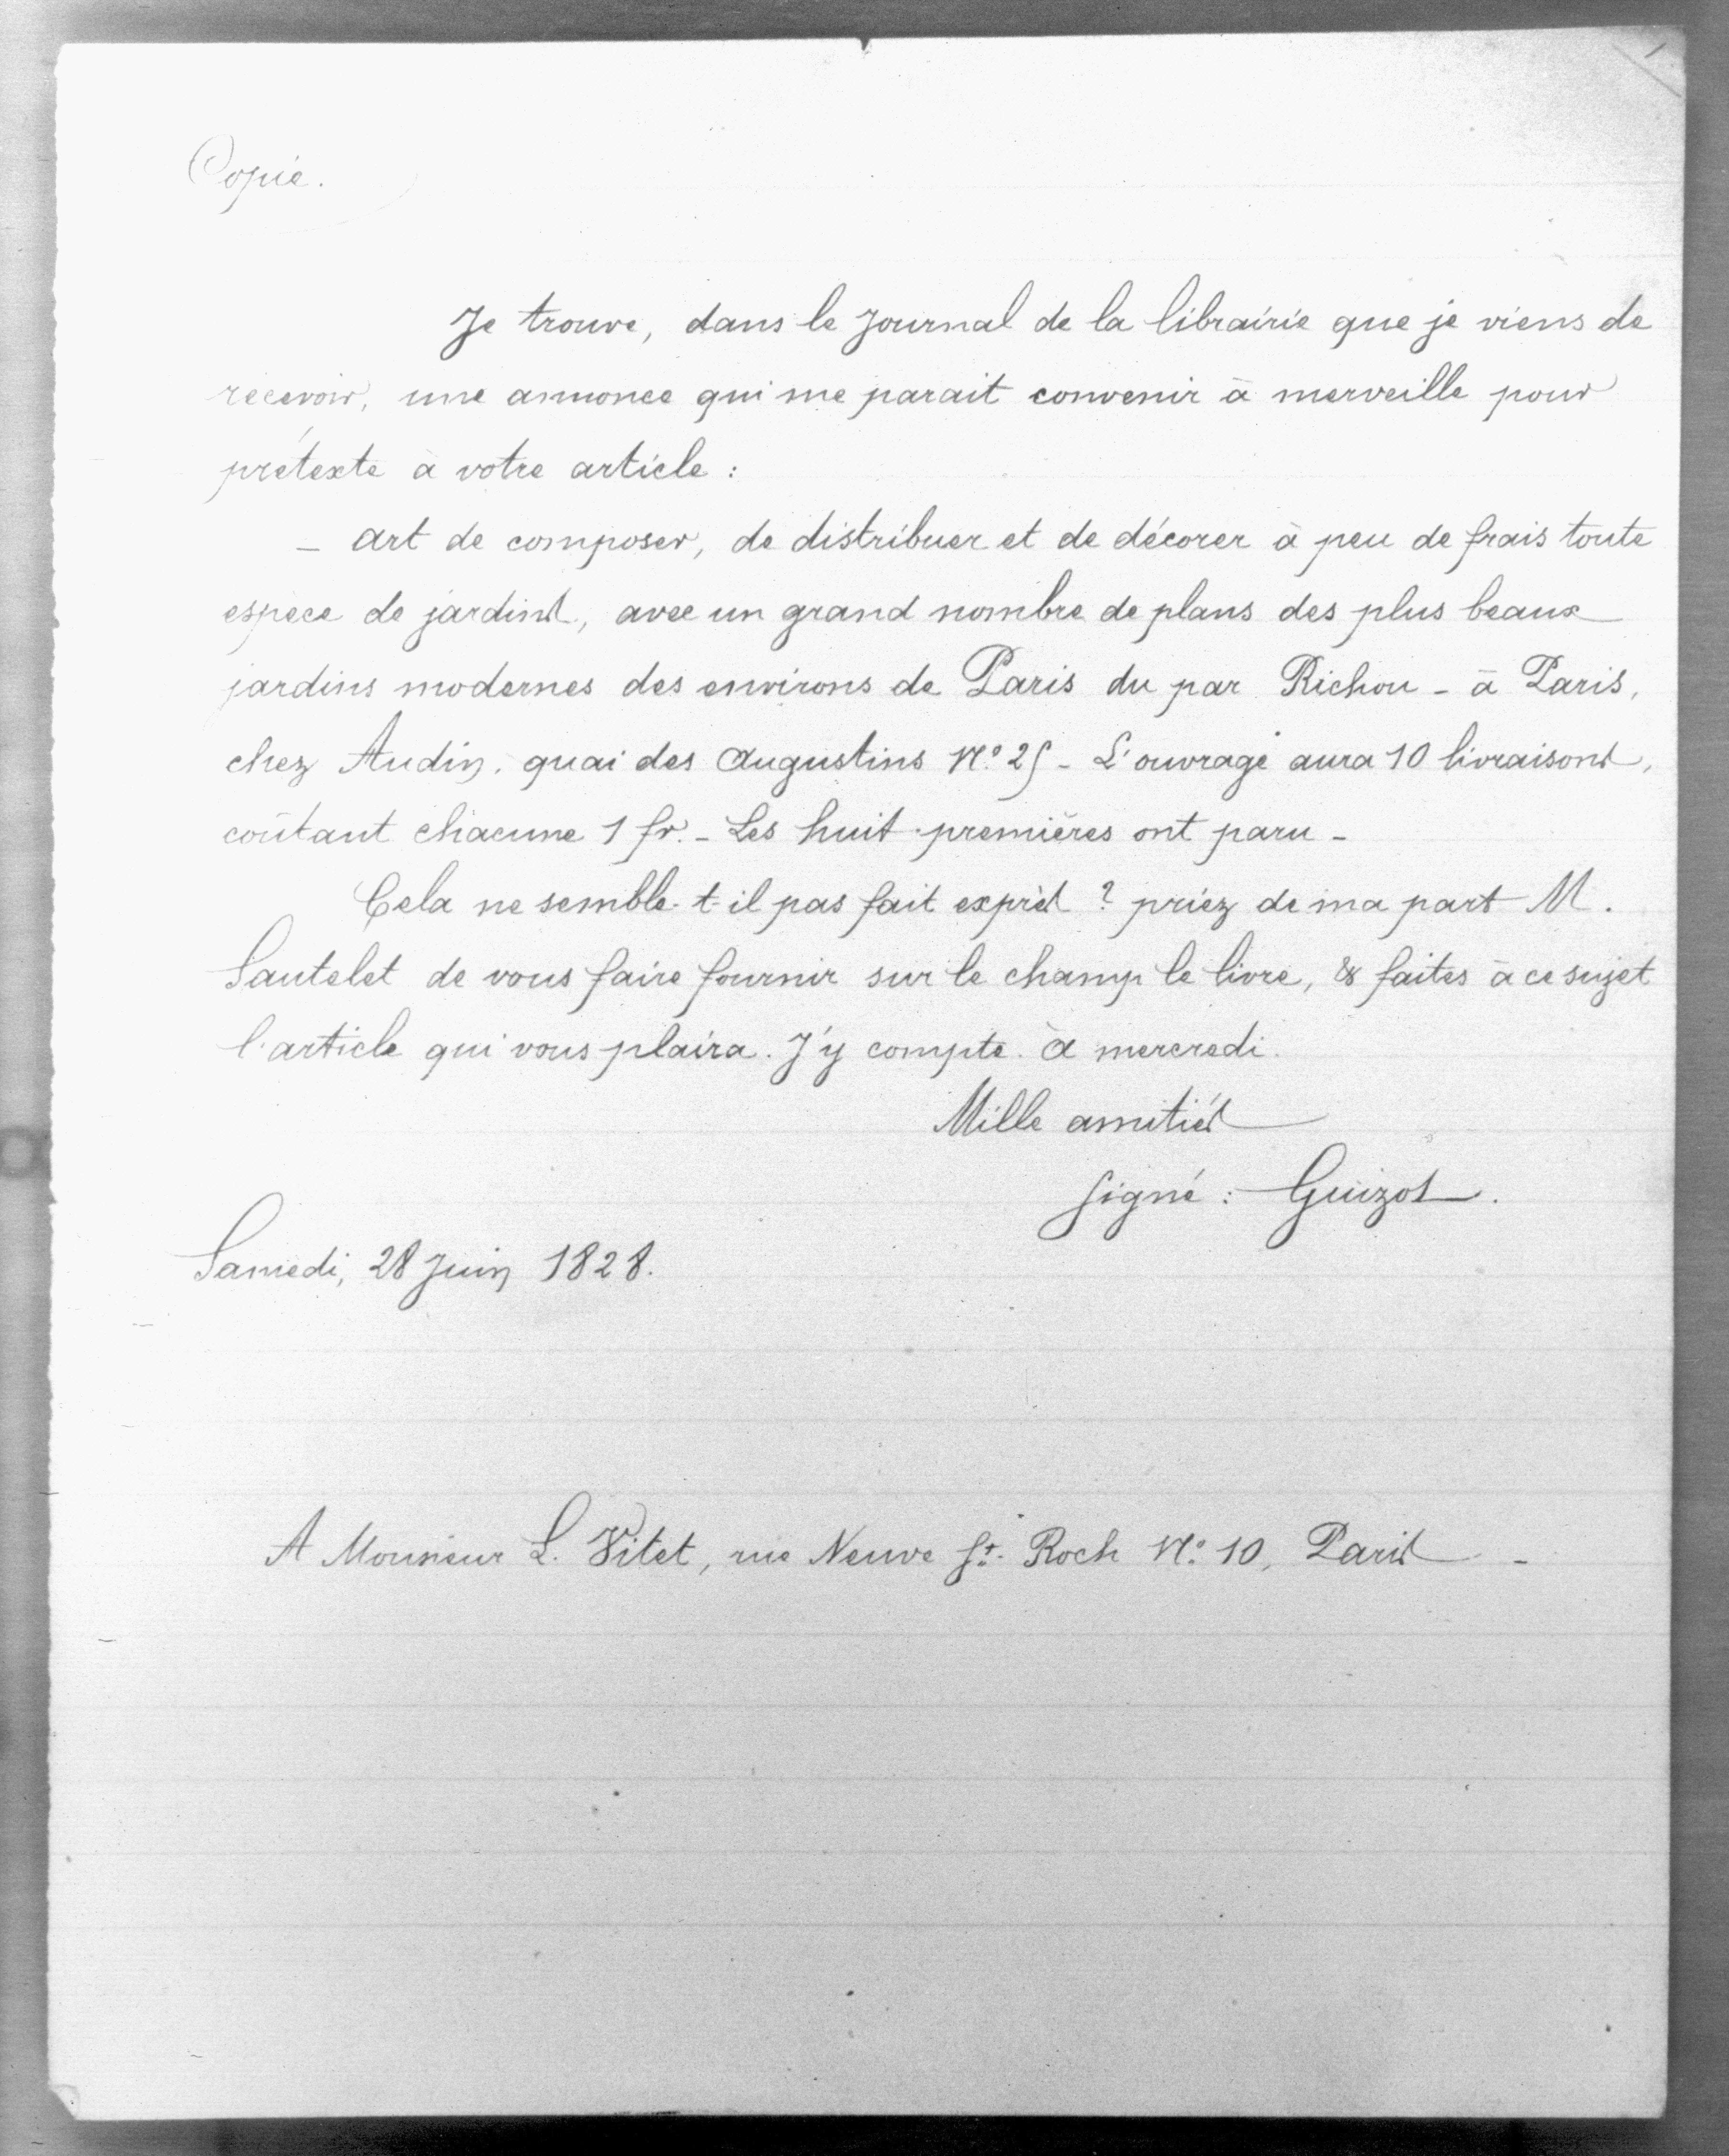 Copie.
Je trouve, dans le Journal de la librairie que je viens de
recevoir, une annonce qui me parait convenir à merveille pour
prétexte à votre article :
_ Art de composer, de distribuer et de décorer à peu de frais toute
espèce de jardins, avec un grand nombre de plans des plus beaux
jardins modernes des environs de Paris du par Richou _ à Paris,
chez Audin, quai des Augustins N.° 25 _ L'ouvrage aura 10 livraisons,
coûtant chacune 1 fr. _ Les huit premières ont paru _
Cela ne semble-t-il pas fait exprès ? priez de ma part M.
Sautelet de vous faire fournir sur le champ le livre, & faites à ce sujet
l'article qui vous plaira. J'y compte. À mercredi.
Mille amitiés
Signé : Guizot.
Samedi, 28 Juin 1828.
A Monsieur L. Vitet, rue Neuve St. Roch N.° 10, Paris _